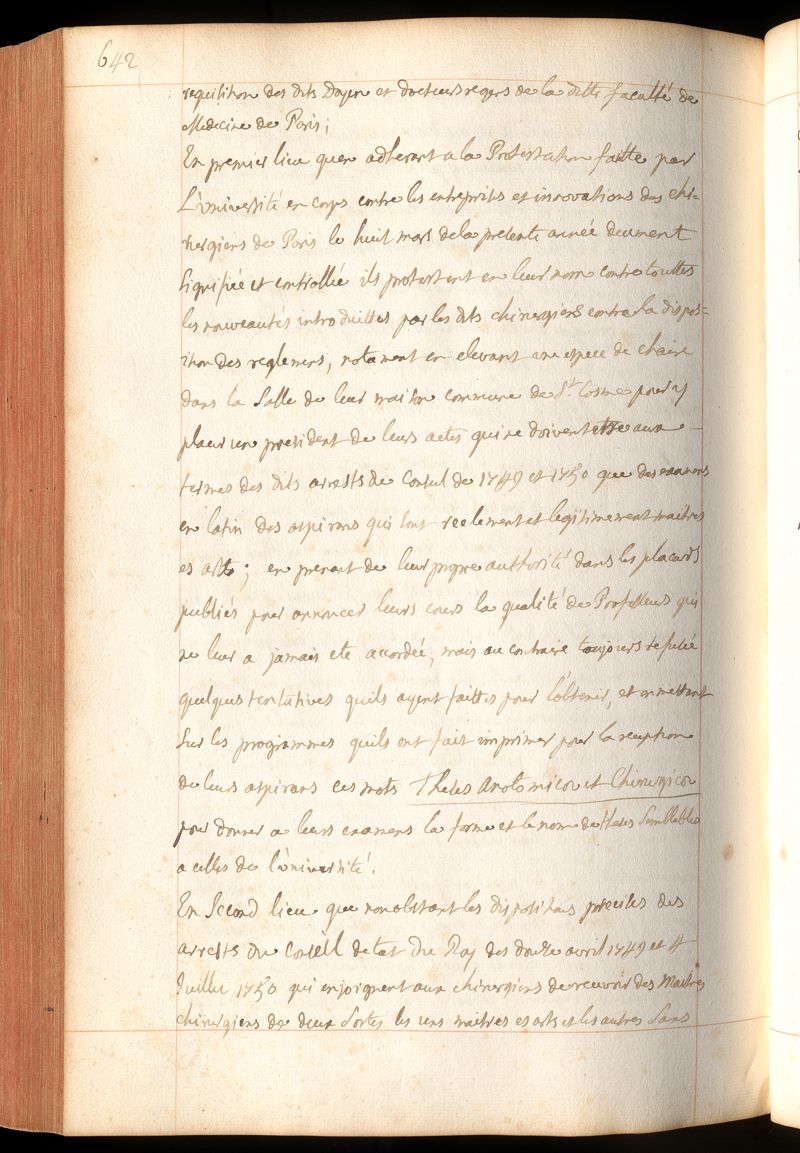 642
requisition des dits Doyen et docteurs regens de la ditte faculté de
Medecine de Paris;
En premier lieu quen adherant a la Protestation faitte par
L'université en corps contre les entreprises et innovations des chi-
rurgiens de Paris le huit mars de la presente année deument
signifiée et controllée ils protestent en leur nom contre touttes
les nouveautés introduittes par les dits chirurgiens contre la dispos-
ition des reglemens, notament en elevant une espece de chaire
dans la Salle de leur maison commune de St. Cosme pour y
placer un president de leurs actes qui ne doivent etre aux
termes des dits arrests du Conseil de 1749 et 1750 que des examens
en latin des aspirans qui sont reelement et legitimement maitres
es arts; en prenant de leur propre authorité dans les placards
publiés pour annoncer leurs cours la qualité de Professeurs qui
ne leur a jamais eté accordée, mais au contraire toujours refusée
quelques tentatives quils ayent faittes pour l'obtenir, et en mettant
sur les programmes quils ont fait imprimer pour la reception
de leurs aspirans ces mots Theses anatomicæ et Chirurgicæ
pour donner a leurs examens la forme et le nom de theses semblables
a celles de l'université.
En Second lieu que nonobstant les dispositions precises des
arrests du Conseil detat du Roy des douze avril 1749 et 4
Juillet 1750 qui enjoignent aux chirurgiens de recevoir des Maitres
chirurgiens de deux sortes les uns maitres es arts et les autres sans